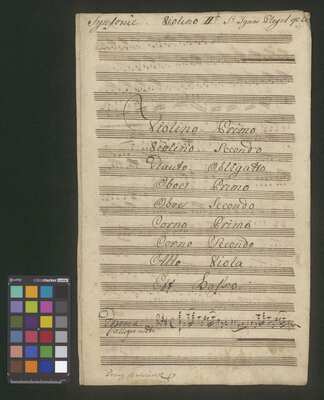 Synfonie. Violino II do Sr. Ignaz Pleyel
Violino Primo
Violino Secondo
Flauto Obligatto
Oboe Primo
Oboe Secondo
Corno Primo
Corno Secondo
Alto Viola
Est Basso